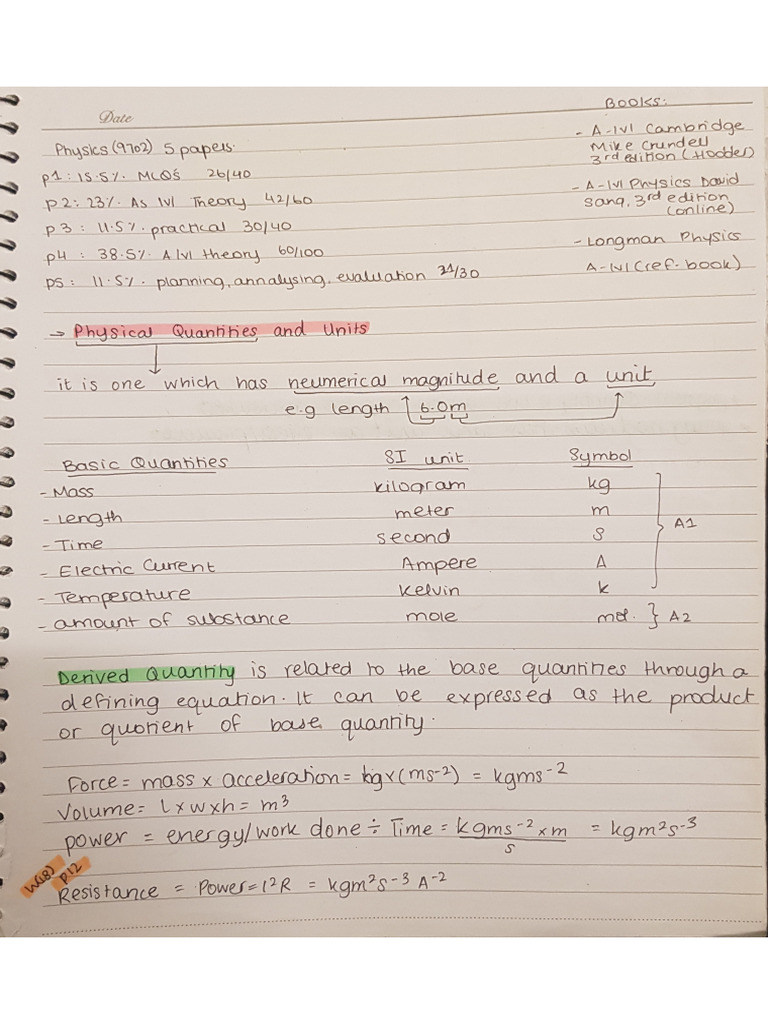 Date
BOOKS:
Physics (9702) 5 papers.
- A-lvl Cambridge
Mike Crundell
3rd edition (Hodder)
p1 : 15.5%. MCQ's 26/40
p2 : 23%. As lvl Theory 42/60
- A-lvl Physics David
Sang, 3rd edition
(online)
p3 : 11.5%. practical 30/40
p4 : 38.5%. A lvl theory 60/100
- Longman Physics
A-lvl (ref. book)
p5 : 11.5%. planning, annalysing, evaluation /30
→ Physical Quantities and Units
it is one which has neumerical magnitude and a unit
e.g length 6.0m
Basic Quantities SI unit Symbol
- Mass kilogram kg
- Length meter m
- Time second s
A1
- Electric Current Ampere A
- Temperature kelvin k
- amount of substance mole mol. } A2
Derived Quantity is related to the base quantities through a
defining equation. It can be expressed as the product
or quotient of base quantity.
Force = mass x acceleration = kg x (ms⁻²) = kgms⁻²
Volume = l x w x h = m³
power = energy/work done ÷ Time = kgms⁻² x m = kgm²s⁻³
s
W(18)
P12
Resistance = Power = I²R = kgm²s⁻³ A⁻²